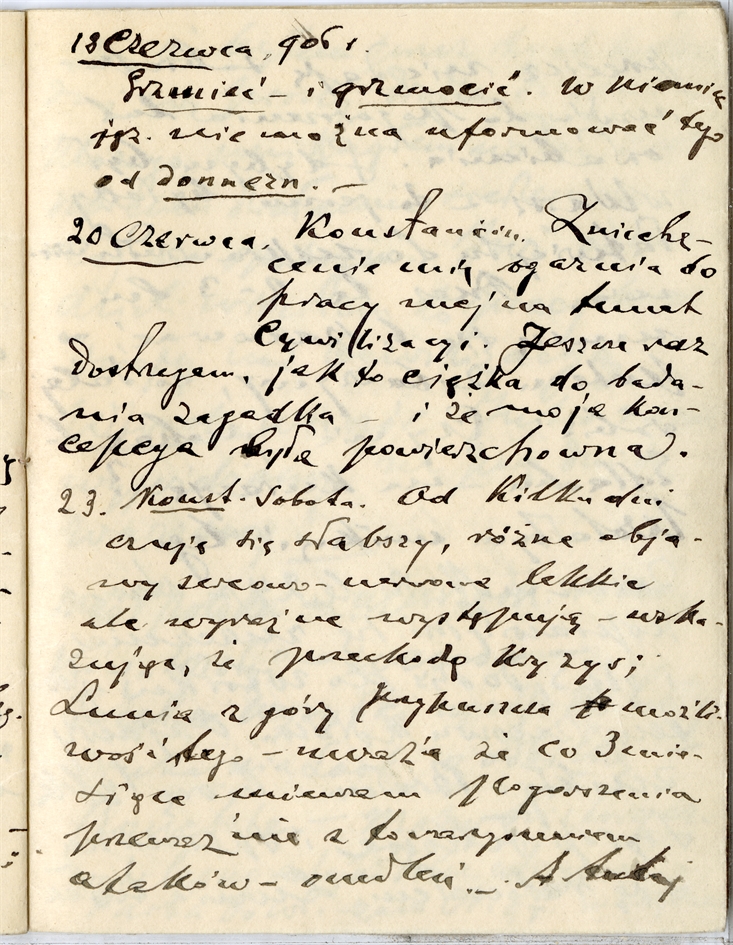 18 Czerwca, 906 r.
Grzmieć – i grzmocić. W niemiec
jęz. nie można uformować tego
od donnern. –
20 Czerwca. Konstancin. Zniechę-
cenie mię ogarnia do
pracy mej na temat
Cywilizacyi. Jeszcze raz
dostrzegam, jak to ciężka do bada-
nia zagadka – i że moja kon-
cepcya będzie powierzchowna.
23. Konst. Sobota. Od kilku dni
czuję się słabszy, różne obja-
wy sercowo-nerwowe lekkie
ale wyraźne występują – wska-
zując, że przechodzę kryzys;
Lunia z góry przypuszcza możli-
wość tego – uważa że co 3 mie-
siące miewam pogorszenia
przeważnie z towarzyszeniem
ataków – omdleń. – A tutaj